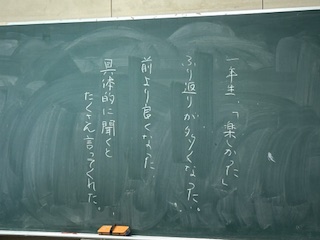 一年生、「楽しかった」
ふり返りが多くなった。
前より良くなった。
具体的に聞くと
たくさん言ってくれた。